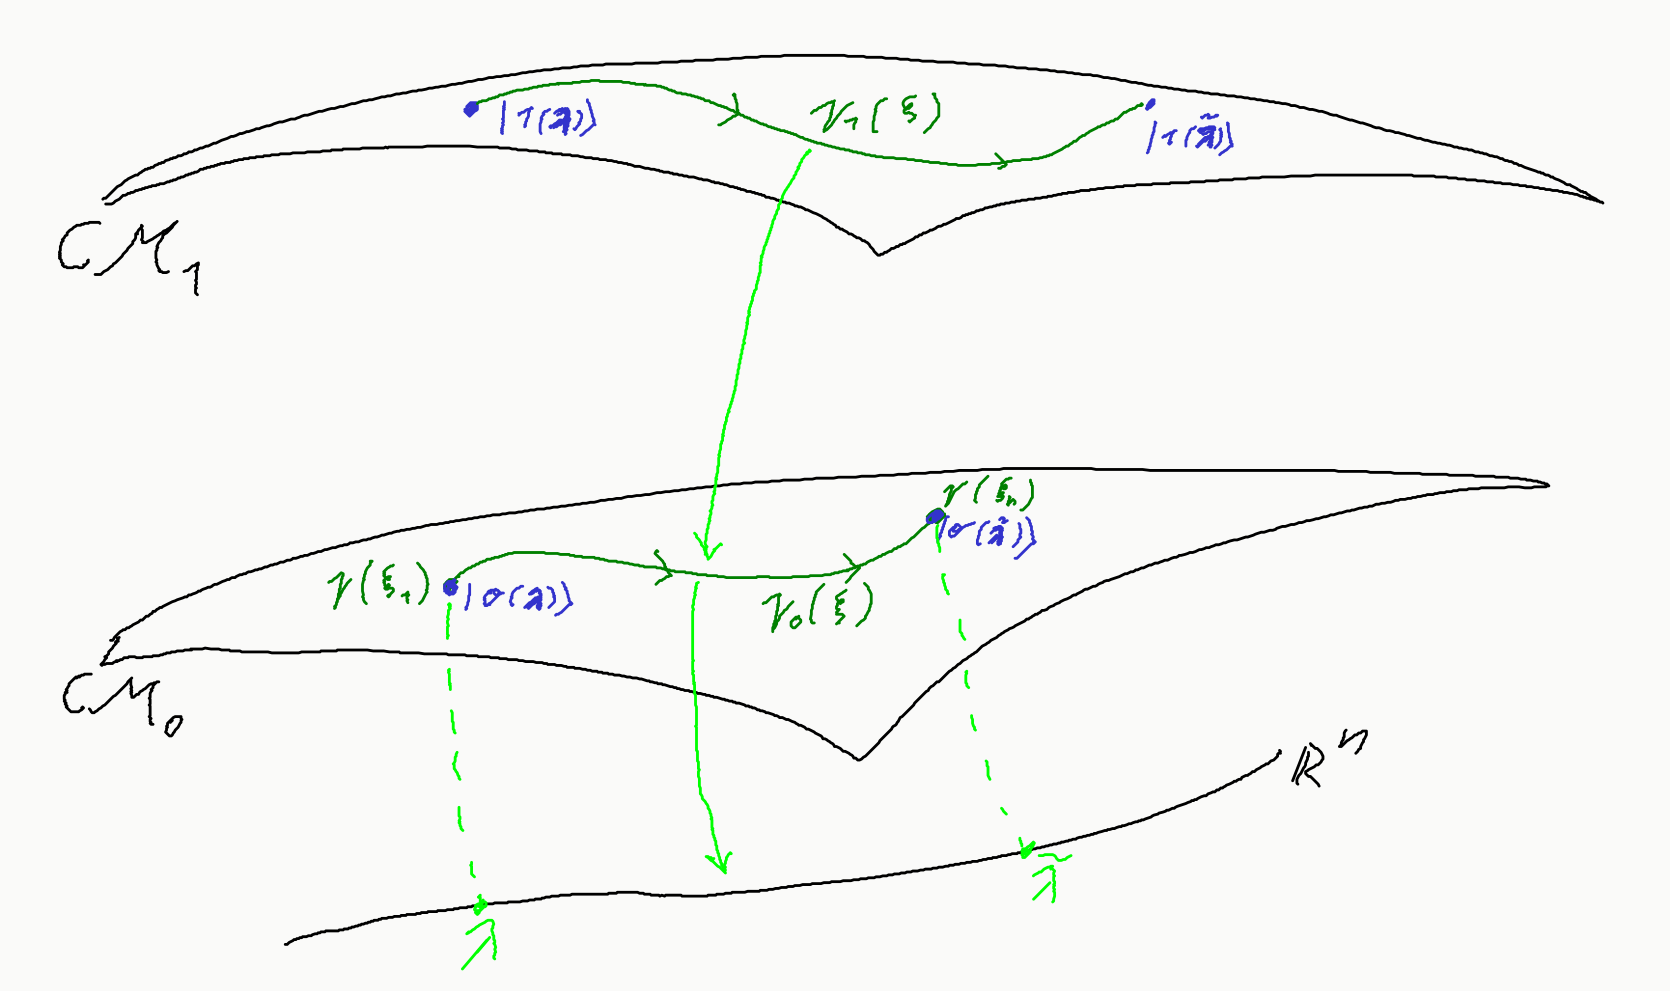 |1(λ)⟩
γ₁(ξ)
|1(λ̃)⟩
CM₁
γ(ξₙ)
|σ(λ̃)⟩
γ(ξ₁)
|σ(λ)⟩
γ₀(ξ)
CM₀
ℝⁿ
λ̃
λ